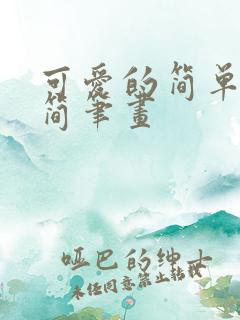 可爱的简单
简笔画
哑巴的绅士
未经同意禁止转载